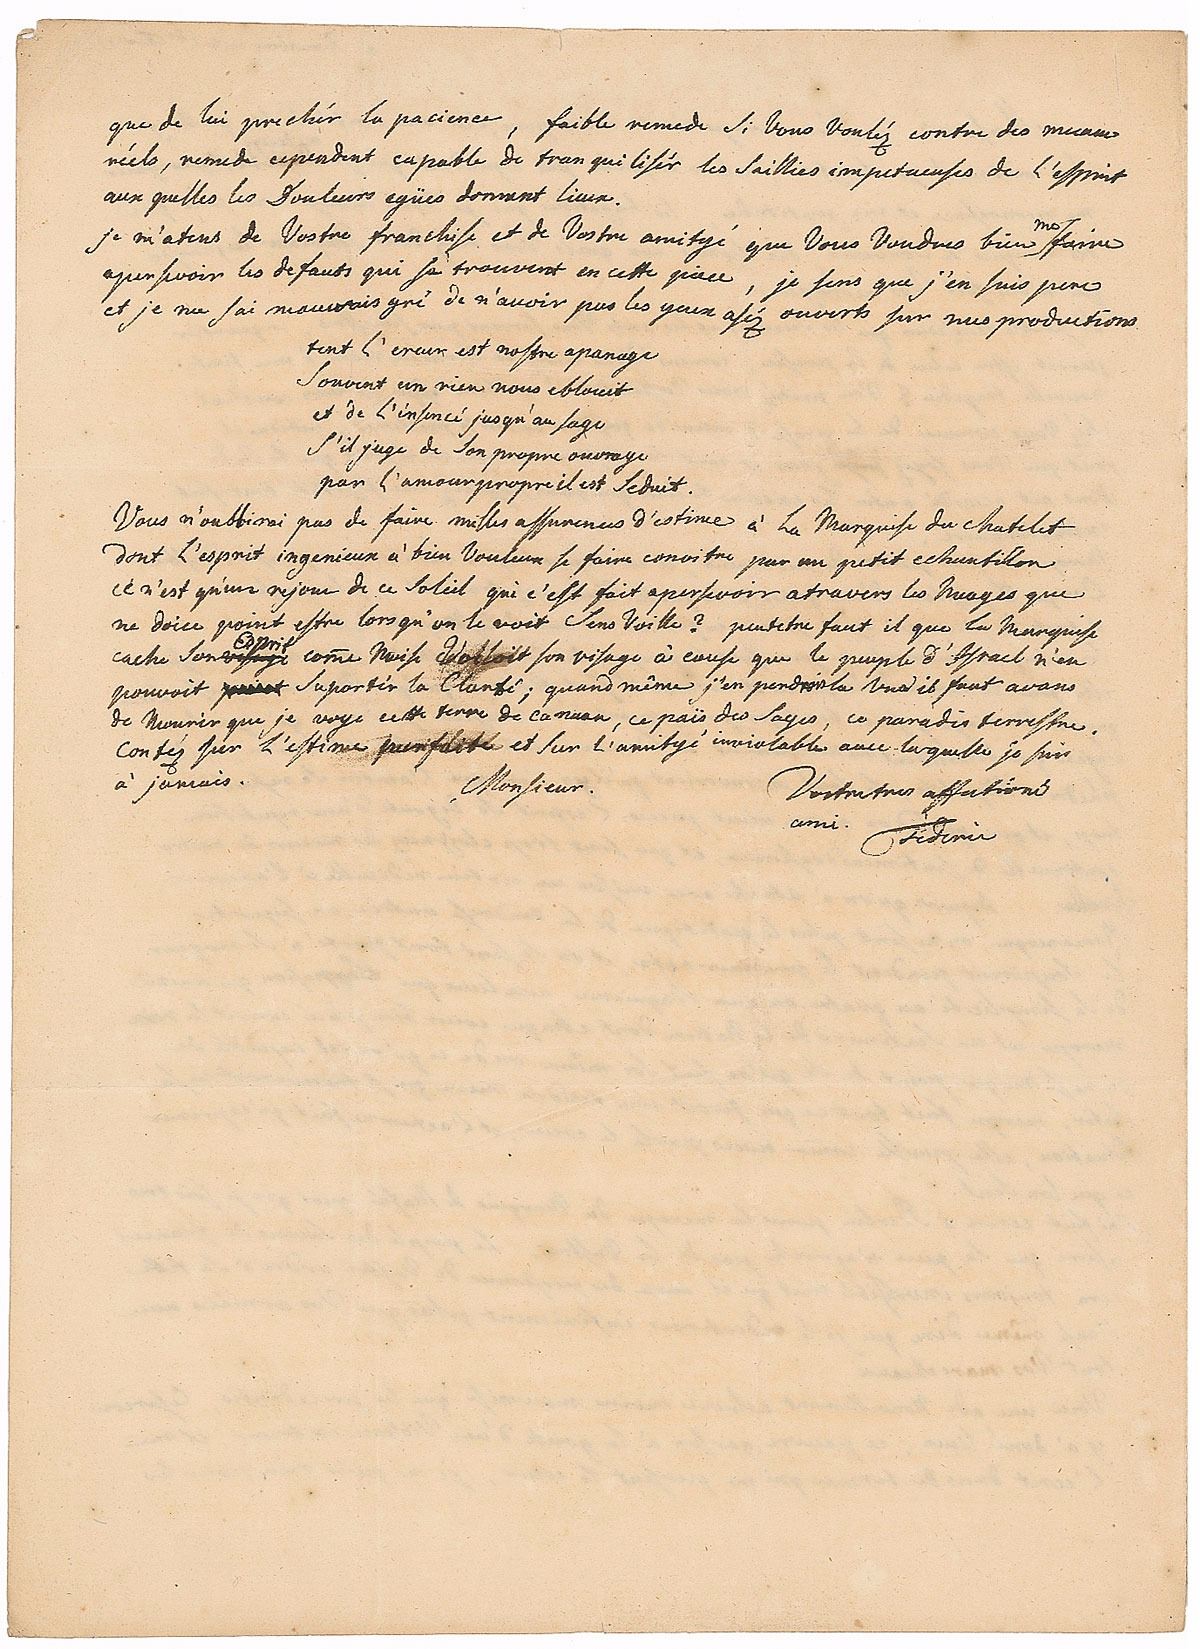 que de lui prechér la pacience, faible remede si Vous Vouléz contre des meaux
réels, remede cependent capable de tranquilisér les saillies impetueuses de l'esprit
aux quelles les Douleurs egües donnent lieux.
je m'atens de Vostre franchise et de Vostre amityé que Vous Voudres bien me faire
apersevoir les defauts qui sà trouvent en cette piece, je sens que j'en suis pere
et je me sai mauvais gré de n'avoir pas les yeux aséz ouverts sur mes productions
tent l'ereur est nostre apanage
Souvent un rien nous eblouit
et de l'insencé jusqu'au sage
S'il juge de son propre ouvrage
par l'amour propre il est Seduit.
Vous n'oublirai pas de faire milles assurences d'estime à La Marquise du Chatelet
dont L'esprit ingenieux à bien Vouleux se faire conoitre par un petit echantillon
ce n'est qu'un rejon de ce Soleil qui c'est fait apersevoir atravers les Nuages que
ne doice point estre lorsqu'on le voit sens Voille? peutetre faut il que la Marquise
cache Son visage esprit come Moise Voilloit son visage à cause que le peuple d'Israel n'en
pouvoit Suportér la Clarté; quand même j'en perdrois la Vue il faut avans
de Mourir que je voye cette terre de Canaan, ce païs des Sages, ce paradis terrestre.
Contéz sur L'estime parfaite et sur l'amityé inviolable avec laquelle je suis
à jamais. Monsieur. Vostre tres affectioné
ami. Féderic